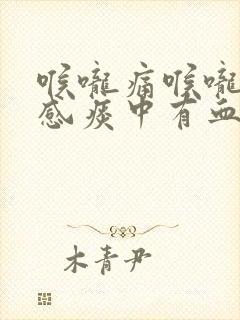 喉咙痛喉咙
感痰中有血
木青尹